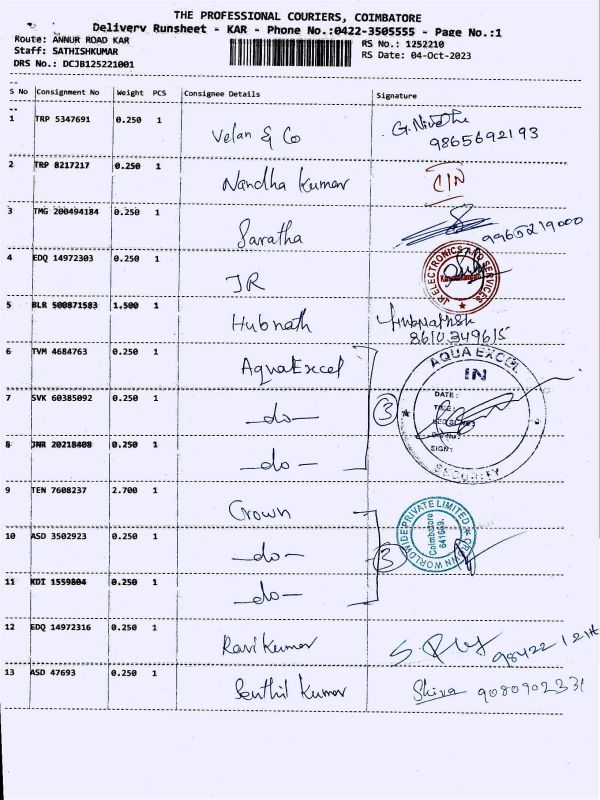 THE PROFESSIONAL COURIERS, COIMBATORE
Delivery Runsheet - KAR - Phone No.:0422-3505555 - Page No.:1
Route: ANNUR ROAD KAR
RS No.: 1252210
Staff: SATHISHKUMAR
RS Date: 04-Oct-2023
DRS No.: DCJB125221001
S No Consignment No Weight PCS Consignee Details Signature
1 TRP 5347691 0.250 1 Velan & Co G. Nivetha
9865692193
2 TRP 8217217 0.250 1 Nandha Kumar
3 TMG 200494184 0.250 1 Saratha 9965219000
4 EDQ 14972303 0.250 1 JR
JR ELECTRONICS AND SERVICES
5 BLR 500871583 1.500 1 Hubnath Hubnath
8610349615
6 TVM 4684763 0.250 1 AquaExcel
7 SVK 60385092 0.250 1 —do— 3
8 JNR 20218408 0.250 1 —do—
AQUA EXCEL
IN
DATE:
TIME:
SIGN:
SECURITY
9 TEN 7608237 2.700 1 Crown
10 ASD 3502923 0.250 1 —do— 3
11 KDI 1559804 0.250 1 —do—
CROWN WORLDWIDE PRIVATE LIMITED
Coimbatore
12 EDQ 14972316 0.250 1 Ravi Kumar
13 ASD 47693 0.250 1 Senthil Kumar Shiva 9080902331